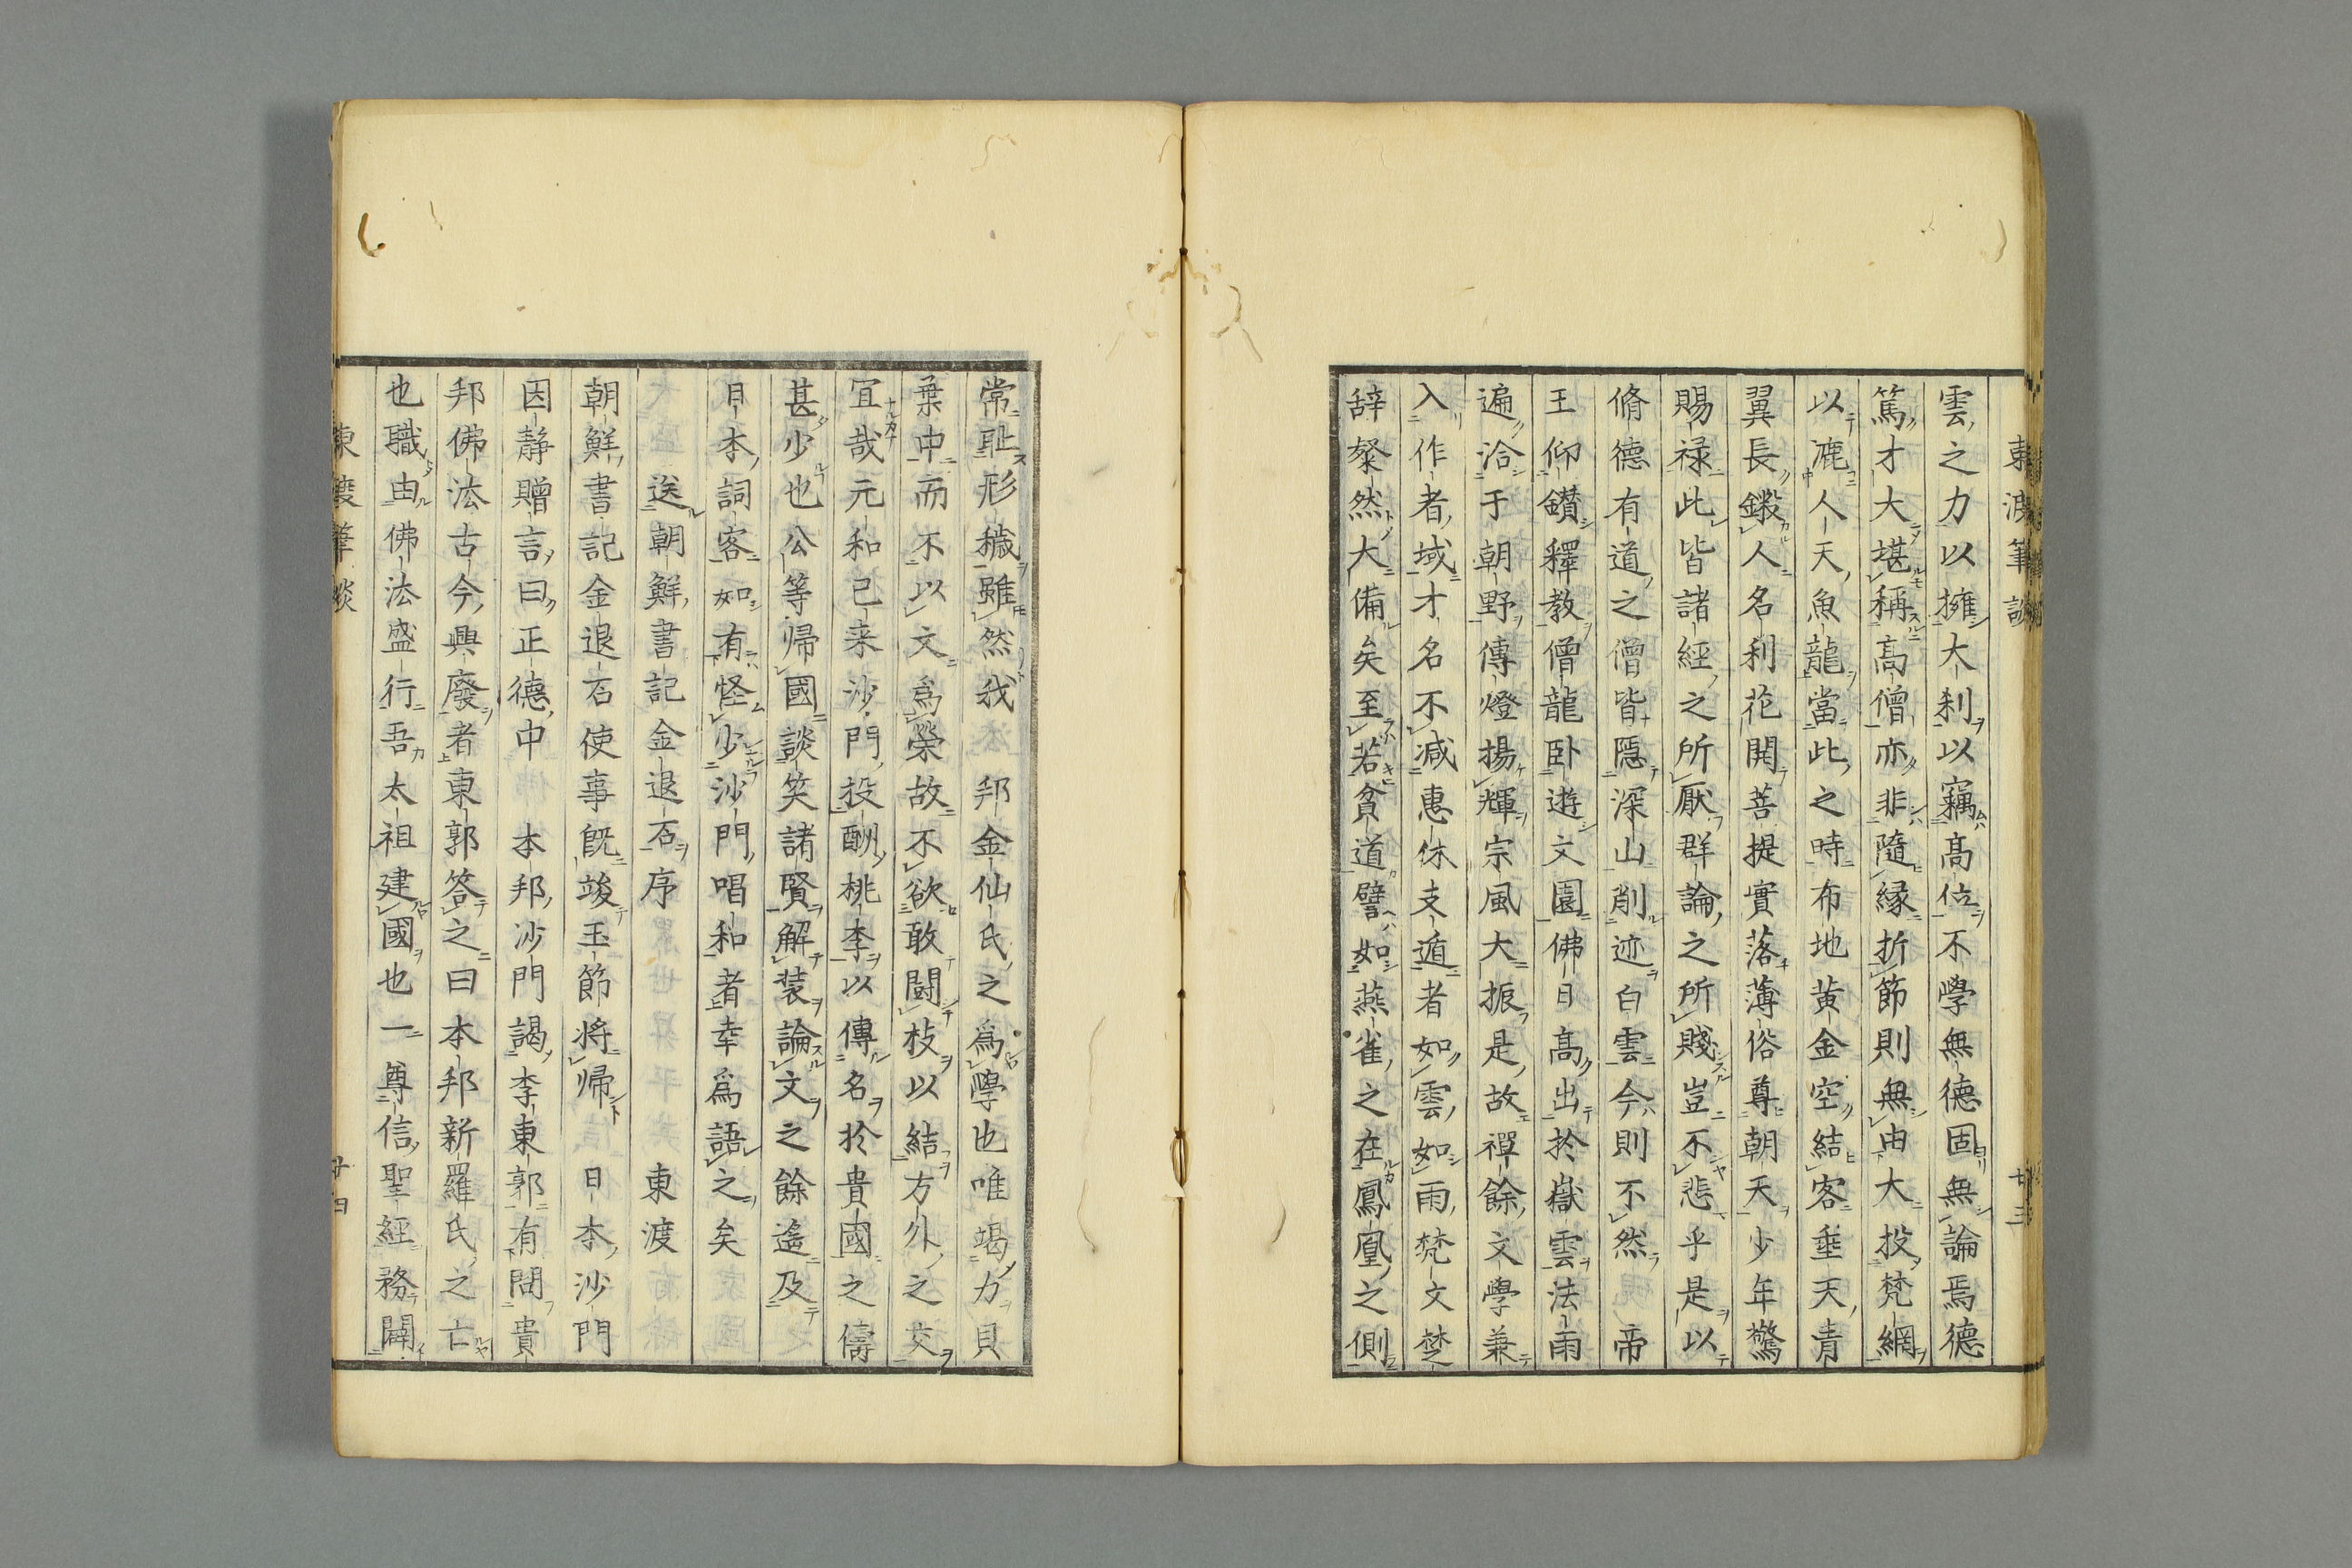 東渡筆談 廿三
雲之力以擁大刹以竊髙位不學無德固無論焉德
篤才大堪稱髙僧亦非隨縁折節則無由大投梵網
以漉人天魚龍當此之時布地黄金空結客垂天青
翼長鎩人名利花開菩提實落薄俗尊朝天少年驚
賜禄此皆諸經之所厭群論之所賤豈不悲乎是以
脩德有道之僧皆隠深山削迹白雲今則不然 帝
王仰鑚釋教僧龍卧遊文園佛日髙出於嶽雲法雨
遍洽于朝野傳燈揚輝宗風大振是故禪餘文學兼
入作者域才名不减惠休支遁者如雲如雨梵文楚
辞粲然大備矣至若貧道譬如燕雀之在鳳凰之側
常耻形穢雖然我 邦金仙氏之爲學也唯竭力貝
葉中而不以文爲榮故不欲敢鬪枝以結方外之交
冝哉元和已来沙門投酬桃李以傳名於貴國之儔
甚少也公等帰國談笑諸賢解装論文之餘遙及
日本詞客如有怪少沙門唱和者幸爲語之矣
送朝鮮書記金退石序 東渡
朝鮮書記金退石使事既竣玉節将帰 日本沙門
因静贈言曰正德中 本邦沙門謁李東郭有問貴
邦佛法古今興廢者東郭答之曰本邦新羅氏之亡
也職由佛法盛行吾太祖建國也一尊信聖經務闢
東渡筆談 廿四